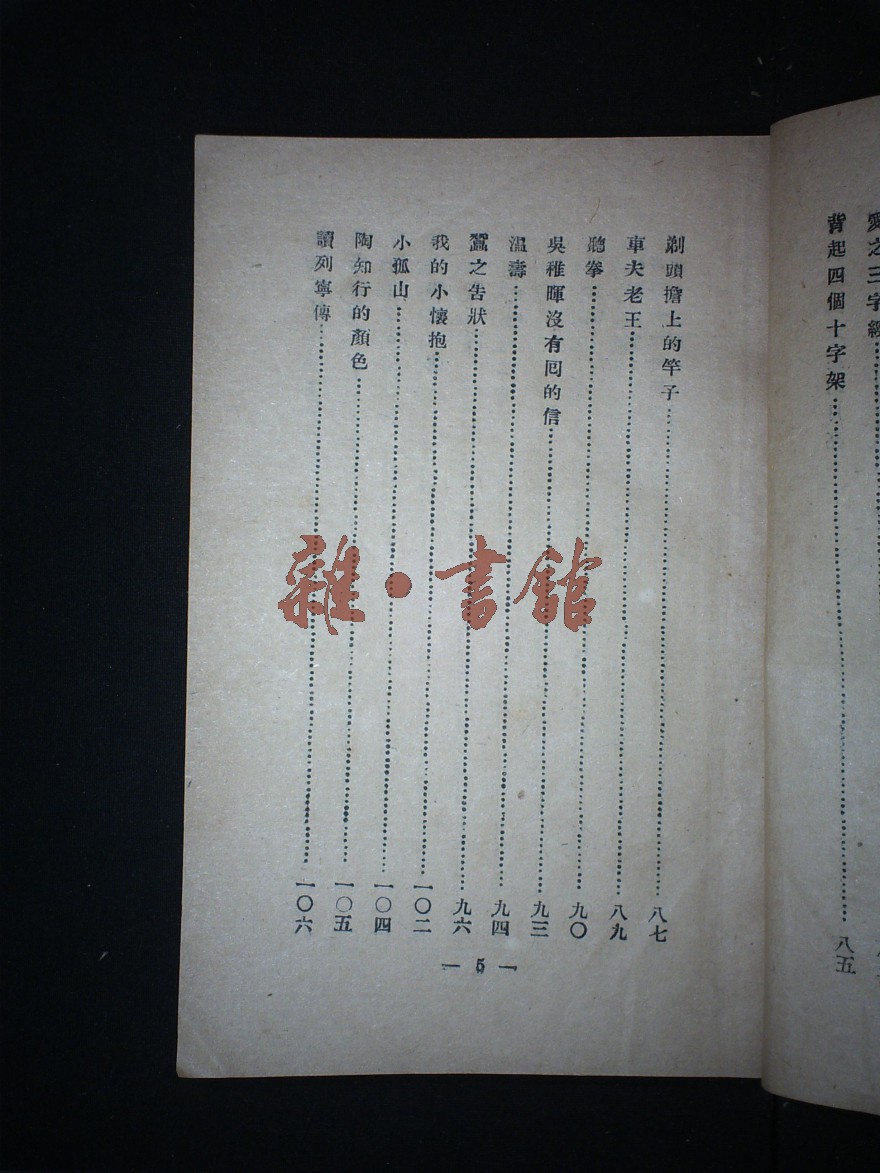 愛之三字經
背起四個十字架……八五
剃頭擔上的竿子……八七
車夫老王……八九
聽拳……九〇
吳稚暉沒有回的信……九三
溫濤……九四
蠶之告狀……九六
我的小懷抱……一〇二
小孤山……一〇四
陶知行的顏色……一〇五
讀列寧傳……一〇六
— 5 —
雜·書館